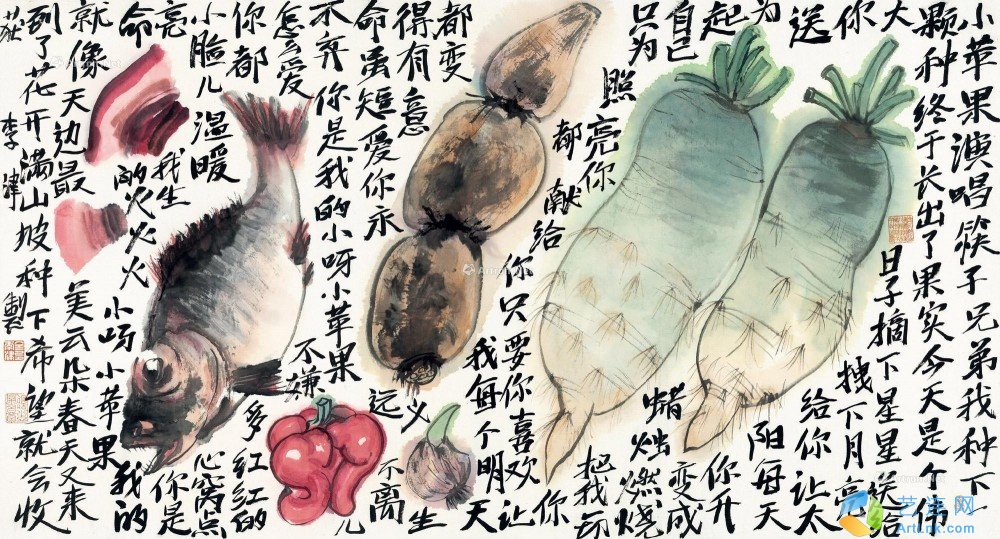 小苹果演唱筷子兄弟我种下一
颗种终于长出了果实今天是个伟
大日子摘下星星送给
你拽下月亮
送给你让太
为阳每天
起你升
自己变成
蜡烛燃烧
只为
照亮你
把我切
都献给你
你只要你喜欢让
我每个明天
都变
得有意义生
命虽短爱你永远
不离
不弃你是我的小呀小苹果儿
怎么爱
你都不嫌多红红的
小脸儿温暖心窝点
亮我生
命的火火火你是我的
小呀小苹果
就像天边最美云朵春天又来
到了花开满山坡种下希望就会收
获
李津製
艺连网
ArtLnk.com